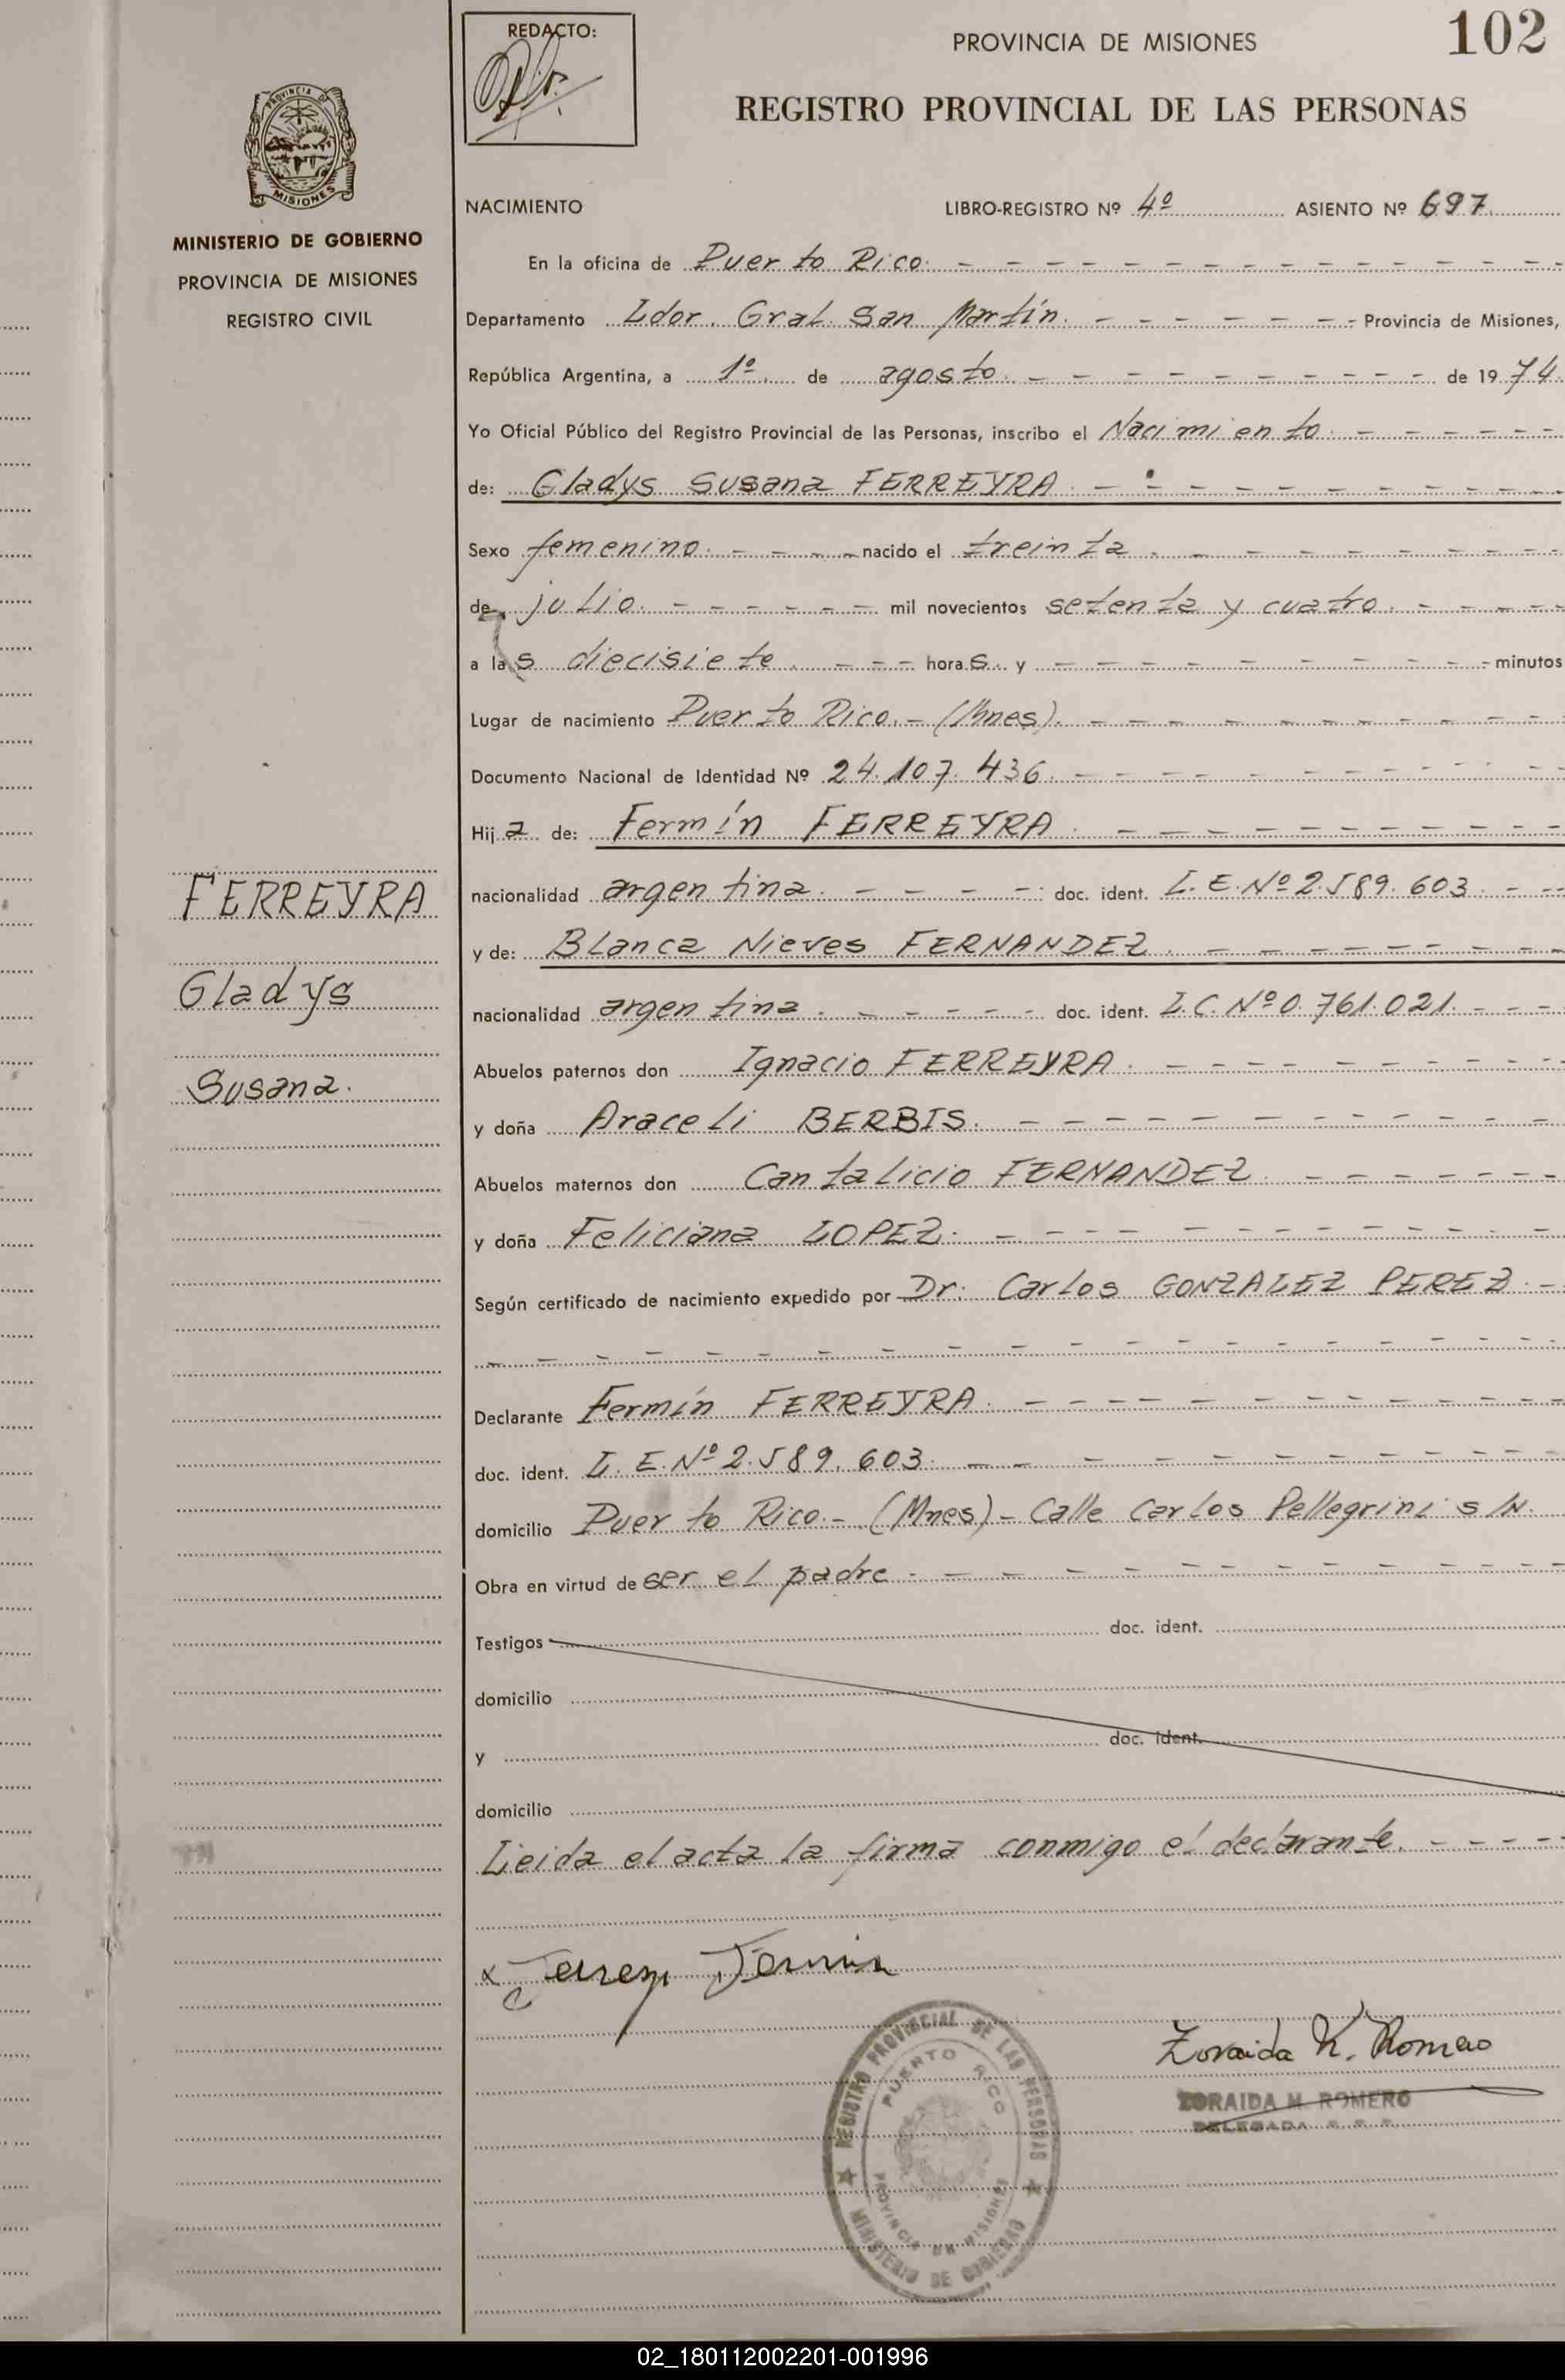 REDACTO:
PROVINCIA DE MISIONES
102
REGISTRO PROVINCIAL DE LAS PERSONAS
PROVINCIA DE
MISIONES
MINISTERIO DE GOBIERNO
PROVINCIA DE MISIONES
REGISTRO CIVIL
NACIMIENTO LIBRO-REGISTRO Nº 4º ASIENTO Nº 697
En la oficina de Puerto Rico.
Departamento Ldor. Gral. San Martín. Provincia de Misiones,
República Argentina, a 1º de agosto. de 1974.
Yo Oficial Público del Registro Provincial de las Personas, inscribo el Nacimiento.
de: Gladys Susana FERREYRA.
Sexo femenino. nacido el treinta.
de julio. mil novecientos setenta y cuatro.
a las diecisiete. horas. y minutos
Lugar de nacimiento Puerto Rico.- (Mnes).
Documento Nacional de Identidad Nº 24.107.436.
Hija de: Fermín FERREYRA.
nacionalidad argentina. doc. ident. L.E.Nº 2.589.603.
y de: Blanca Nieves FERNANDEZ.
nacionalidad argentina. doc. ident. L.C.Nº 0.761.021.
Abuelos paternos don Ignacio FERREYRA.
y doña Araceli BERBIS.
Abuelos maternos don Cantalicio FERNANDEZ.
y doña Feliciana LOPEZ.
Según certificado de nacimiento expedido por Dr. Carlos GONZALEZ PEREZ.
Declarante Fermín FERREYRA.
doc. ident. L.E.Nº 2.589.603.
domicilio Puerto Rico.- (Mnes)- Calle Carlos Pellegrini s/N.
Obra en virtud de ser el padre.
Testigos doc. ident.
domicilio
y doc. ident.
domicilio
Leida el acta la firma conmigo el declarante.
FERREYRA
Gladys
Susana.
x Fermin
Zoraida Romero
ZORAIDA M. ROMERO
DELEGADA
REGISTRO PROVINCIAL DE LAS PERSONAS
PUERTO RICO
PROVINCIA DE MISIONES
MINISTERIO DE GOBIERNO
02_180112002201-001996